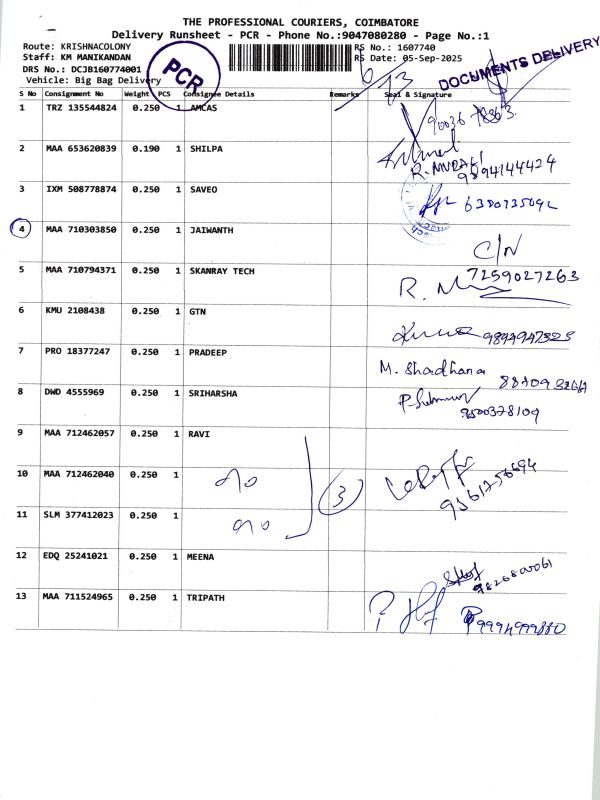 THE PROFESSIONAL COURIERS, COIMBATORE
Delivery Runsheet - PCR - Phone No.:9047080280 - Page No.:1
Route: KRISHNACOLONY
RS No.: 1607740
Staff: KM MANIKANDAN
RS Date: 05-Sep-2025
DRS No.: DCJB160774001
Vehicle: Big Bag Delivery
PCR
DOCUMENTS DELIVERY
6/13
S No Consignment No Weight PCS Consignee Details Remarks Seal & Signature
1 TRZ 135544824 0.250 1 AMCAS
2 MAA 653620839 0.190 1 SHILPA R. MURALI 9894144424
3 IXM 508778874 0.250 1 SAVEO
4 MAA 710303850 0.250 1 JAIWANTH C/N
5 MAA 710794371 0.250 1 SKANRAY TECH 7259027263
6 KMU 2108438 0.250 1 GTN
7 PRO 18377247 0.250 1 PRADEEP M. Shadhana
8 DWD 4555969 0.250 1 SRIHARSHA 9500378109
9 MAA 712462057 0.250 1 RAVI
10 MAA 712462040 0.250 1 3
11 SLM 377412023 0.250 1
12 EDQ 25241021 0.250 1 MEENA
13 MAA 711524965 0.250 1 TRIPATH